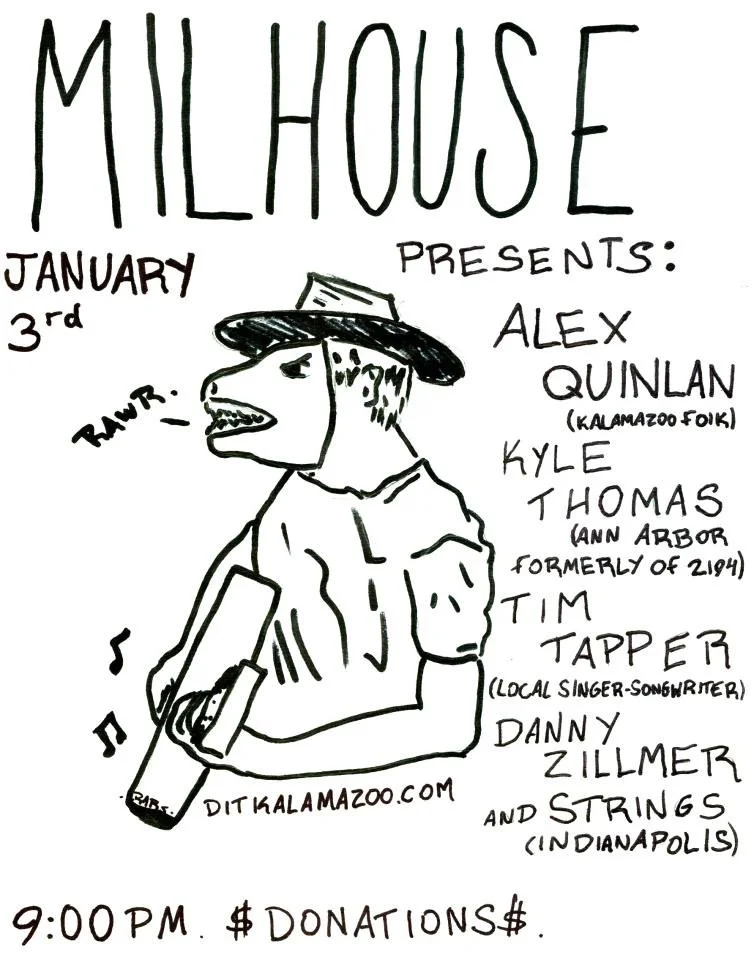 MILHOUSE
PRESENTS:
JANUARY
3rd
RAWR.
ALEX
QUINLAN
(KALAMAZOO FOlK)
KYLE
THOMAS
(ANN ARBOR
FORMERLY OF 2194)
TIM
TAPPER
(LOCAL SINGER-SONGWRITER)
DANNY
ZILLMER
AND STRINGS
(INDIANAPOLIS)
DITKALAMAZOO.COM
9:00 PM. $DONATIONS$.